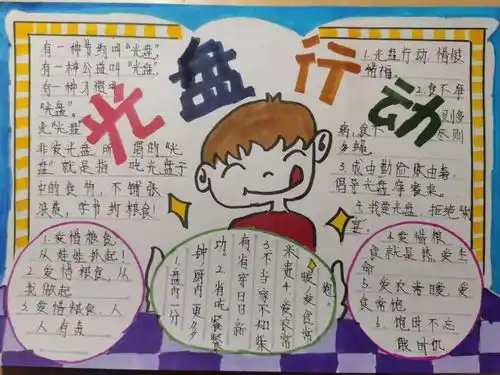 光盘行动
有一种节约叫“光盘”,
有一种公益叫“光盘”,
有一种习惯
“光盘”。
非彼光盘,所谓的“光
盘”就是指 吃光盘子
中的食物,不铺张
浪费,学节约粮食!
1.光盘行动,惜粮
惜福。
2.食不
病,食不
3.成由勤俭败由奢,
倡导光盘
4.我是光盘,拒绝剩
宴。
1.爱惜粮食
从娃娃抓起!
2.爱惜粮食,从
我做起
3.爱惜粮食,人
人有责
1.盘内一分
钟厨内更多
功。2.省吃餐餐
有 省穿日日新
3.不当家不知柴
米贵 4.爱衣常
暖,爱食常
饱。
4.爱惜粮
食就是热爱生
命
5.爱衣常暖,爱
食常饱
6.饱时不忘
饿时饥